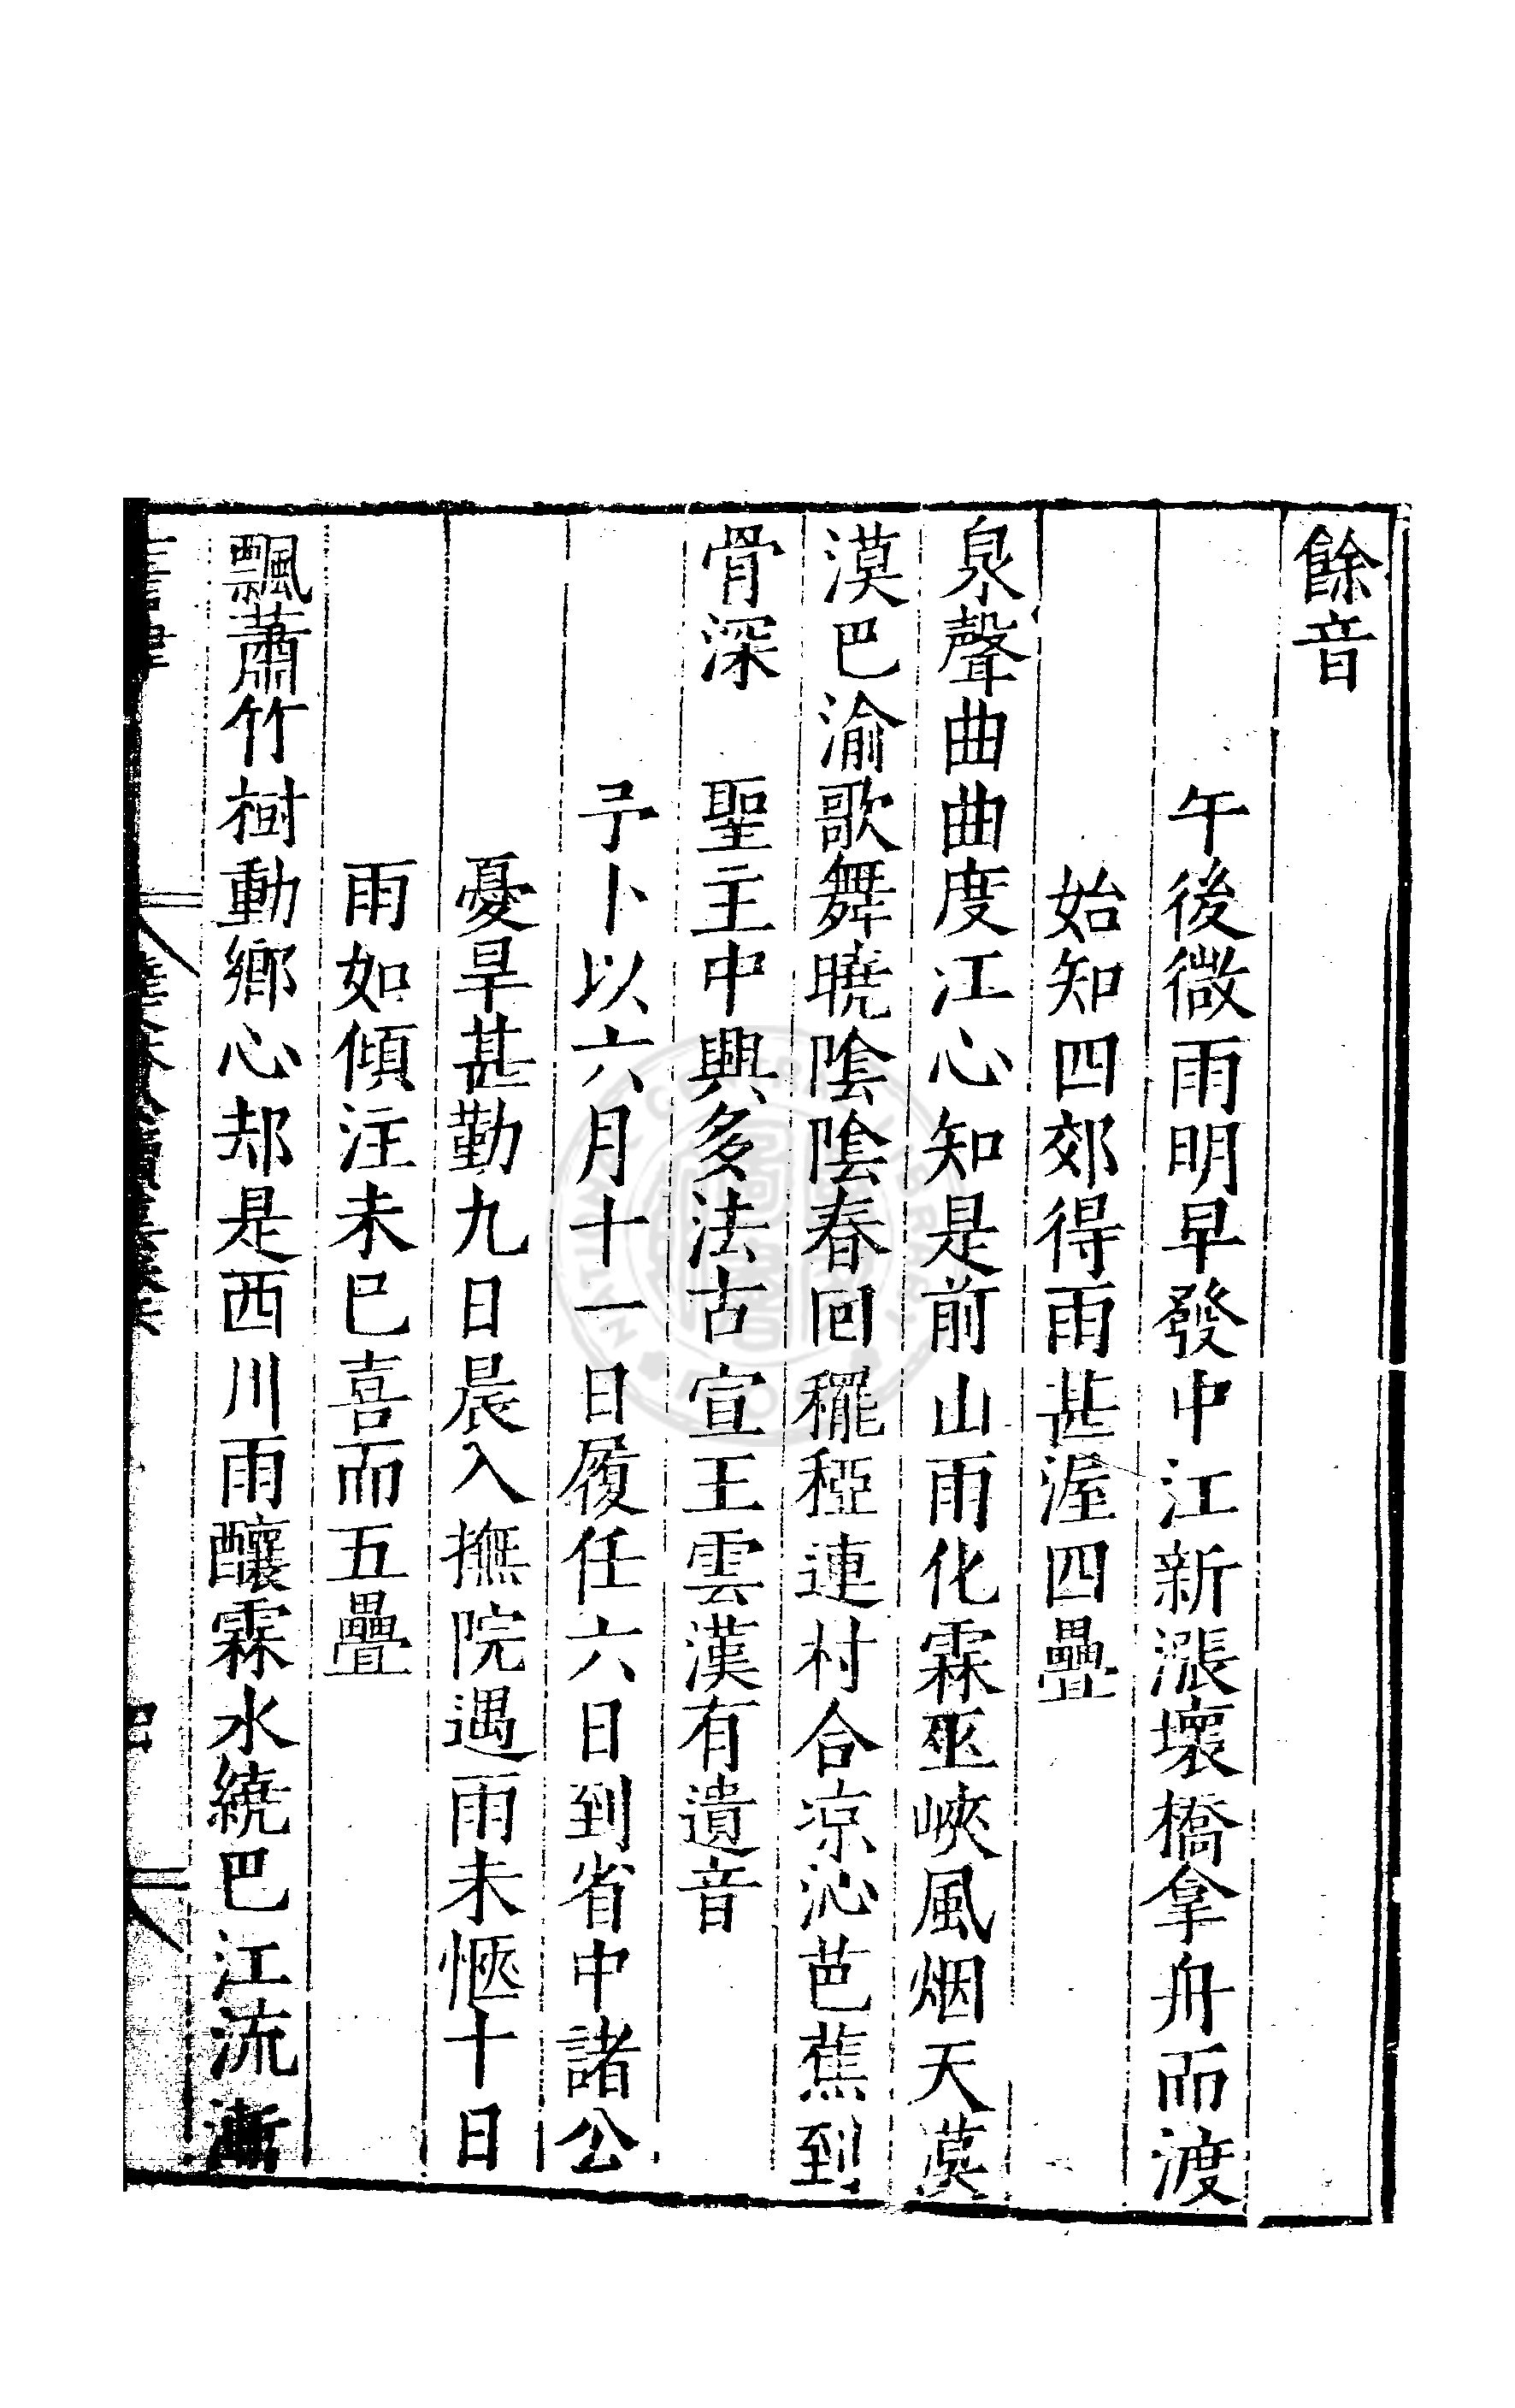 餘音
午後微雨明早發中江新漲壞橋拿舟而渡
始知四郊得雨甚渥四疊
泉聲曲曲度江心知是前山雨化霖巫峽風烟天漠
漠巴渝歌舞曉陰陰春回䆉稏連村合凉沁芭蕉到
骨深　聖主中興多法古宣王雲漢有遺音
予卜以六月十一日履任六日到省中諸公
憂旱甚勤九日晨入撫院遇雨未愜十日
雨如傾注未巳喜而五疊
飄蕭竹樹動鄉心却是西川雨釀霖水繞巴江流漸